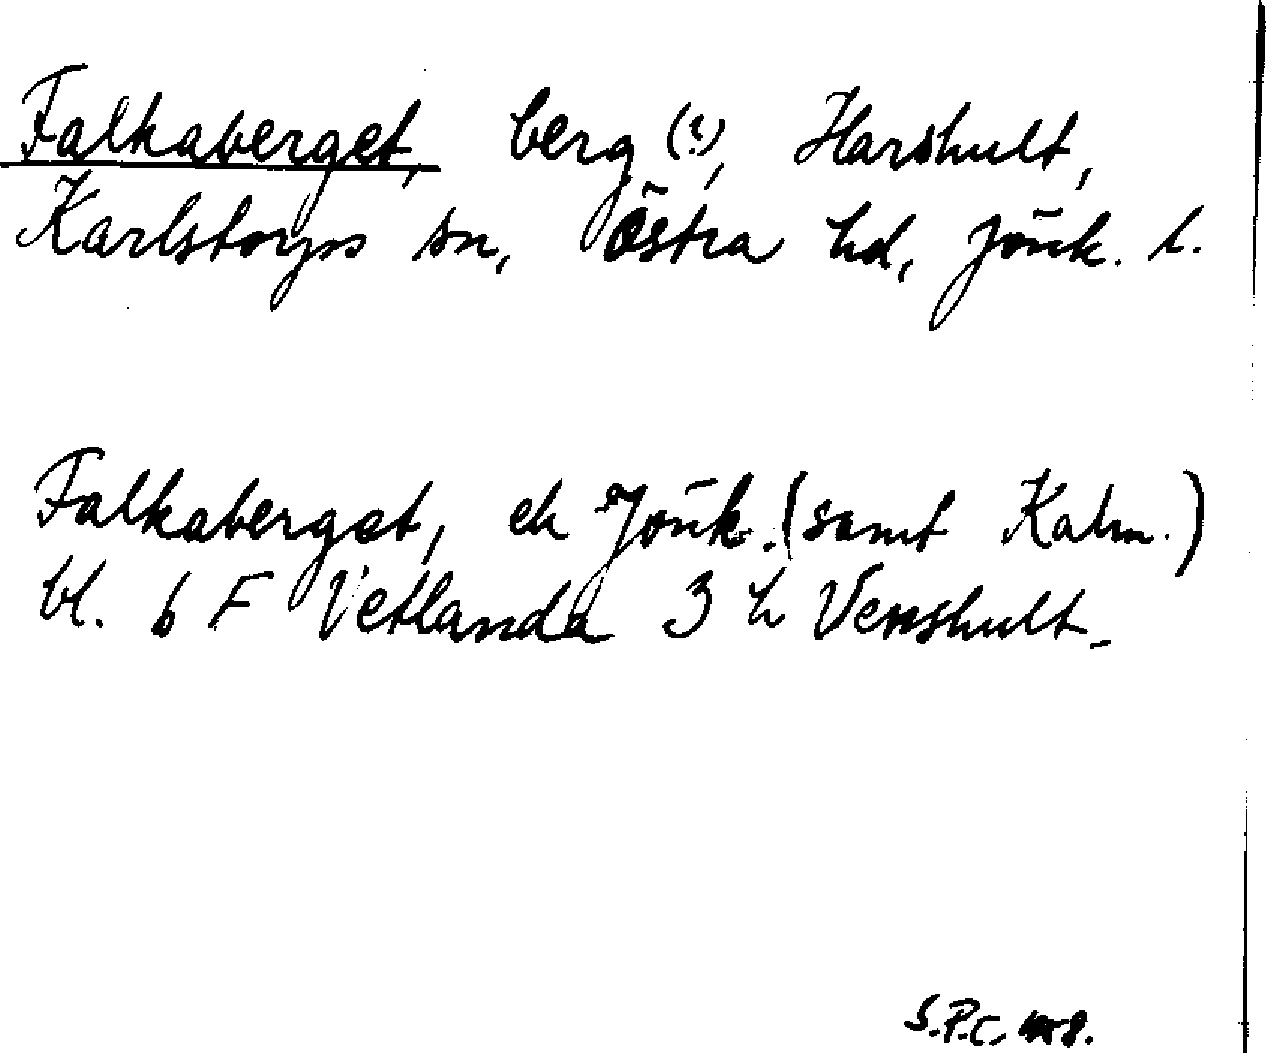 Falkaberget, berg (?), Harshult,
Karlstorps sn, Östra hd, Jönk. l.
Falkaberget, ek Jönk. (samt Kalm.)
bl. 6 F Vetlanda 3 h Venshult.
S.P.C. 1958.